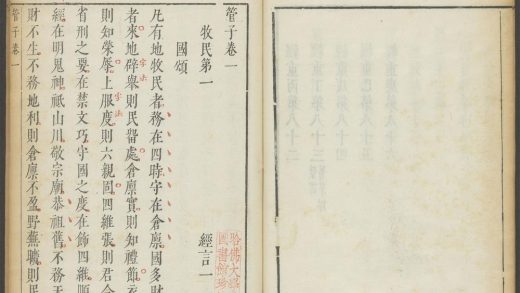 管子卷一
牧民第一 經言一
國頌
凡有地牧民者務在四時守在倉廩國多財
者來地辟舉則民畱處倉廩實則知禮節衣
則知榮辱上服度則六親固四維張則君令
省刑之要在禁文巧守國之度在飾四維順
經在明鬼神祗山川敬宗廟恭祖舊不務天
財不生不務地利則倉廩不盈野蕪曠則民
管子卷一
哈佛大
圖書館珍